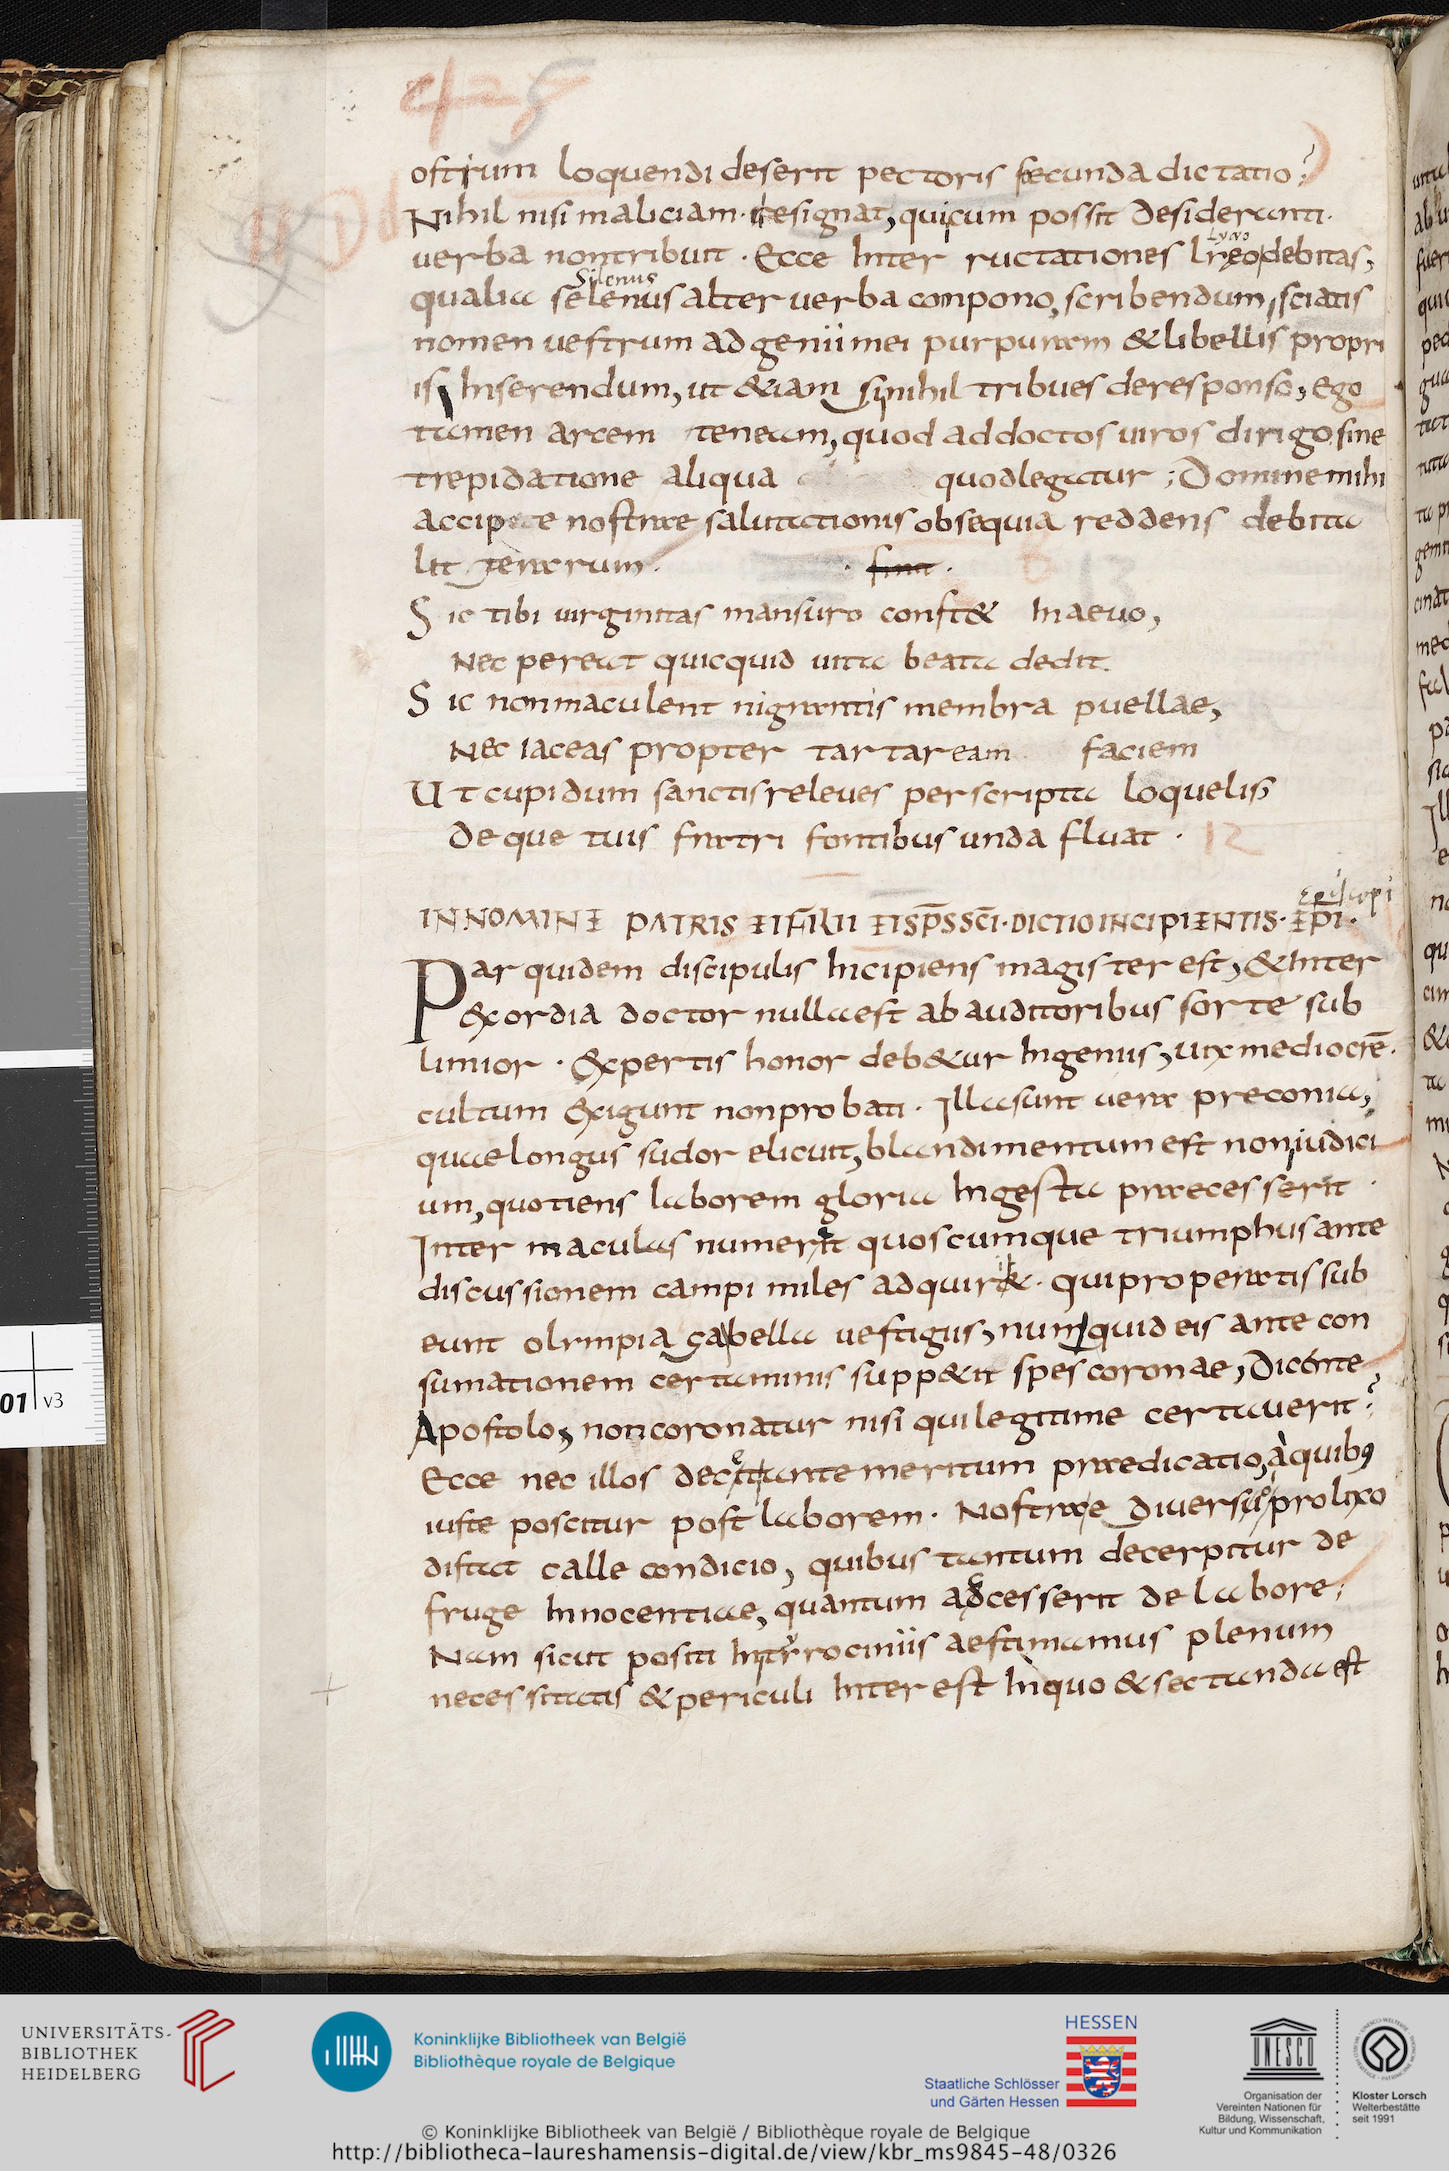 ostium loquendi deserit pectoris fecunda dictatio?
Nihil nisi maliciam. designat, qui cum possit desideranti.
verba non tribuit. Ecce Inter ructationes debitas,
Silenus
qualia selenus alter verba conpono, scribendum, sciatis
nomen vestrum ad genii mei purpuram & libellis propri
is Inserendum, ut &iam si nihil tribues de responso, ego
tamen arcem teneam, quod ad doctos viros dirigo sine
trepidatione aliqua quod legatur; Domine mihi
accipite nostrae salutationis obsequia reddens debita
litterarum. sint.
Sic tibi virginitas mansuro const& In aevo,
Nec pereat quicquid vita beata dedit.
Sic non maculent nigrantis membra puellae,
Nec iaceas propter tartaream faciem
Ut cupidum sanctis releves per scripta loquelis
Deque tuis fratri fontibus unda fluat. 12
episcopi
IN NOMINE PATRIS ET FILII ET SP̄S SC̄I. DICTIO INCIPIENTIS. EP̄I.
Par quidem discipulis Incipiens magister est, & Inter
&xordia doctor nulla est ab auditoribus sorte sub
limior. &xpertis honor deb&ur Ingeniis, vix mediocrē.
cultum &xigunt non probati. Illa sunt vera preconia,
quae longus sudor elicuit, blandimentum est non iudici
um, quotiens laborem gloria Ingesta praecesserit.
Inter maculas numerat quoscumque triumphus ante
discussionem campi miles adquir&. qui properatis sub
eunt olimpia vestigiis, numquid eis ante con
sumationem certaminis supp&it spes coronae, Dicente
Apostolo, non coronatur nisi qui legitime certaverit?
Ecce nec illos meritum praedicatio, a quib;
iuste poscitur post laborem. Nostrae prolixo
distat calle condicio, quibus tantum decerpitur de
fruge Innocentiae, quantum accesserit de labore;
Nam sicut positi In tirociniis aestimamus plenum
necessitatis & periculi Interest In quo & sectanda est
01 v3
UNIVERSITÄTS-
BIBLIOTHEK
HEIDELBERG
Koninklijke Bibliotheek van België
Bibliothèque royale de Belgique
HESSEN
Staatliche Schlösser
und Gärten Hessen
UNESCO
Organisation der
Vereinten Nationen für
Bildung, Wissenschaft,
Kultur und Kommunikation
Kloster Lorsch
Welterbestätte
seit 1991
© Koninklijke Bibliotheek van België / Bibliothèque royale de Belgique
http://bibliotheca-laureshamensis-digital.de/view/kbr_ms9845-48/0326